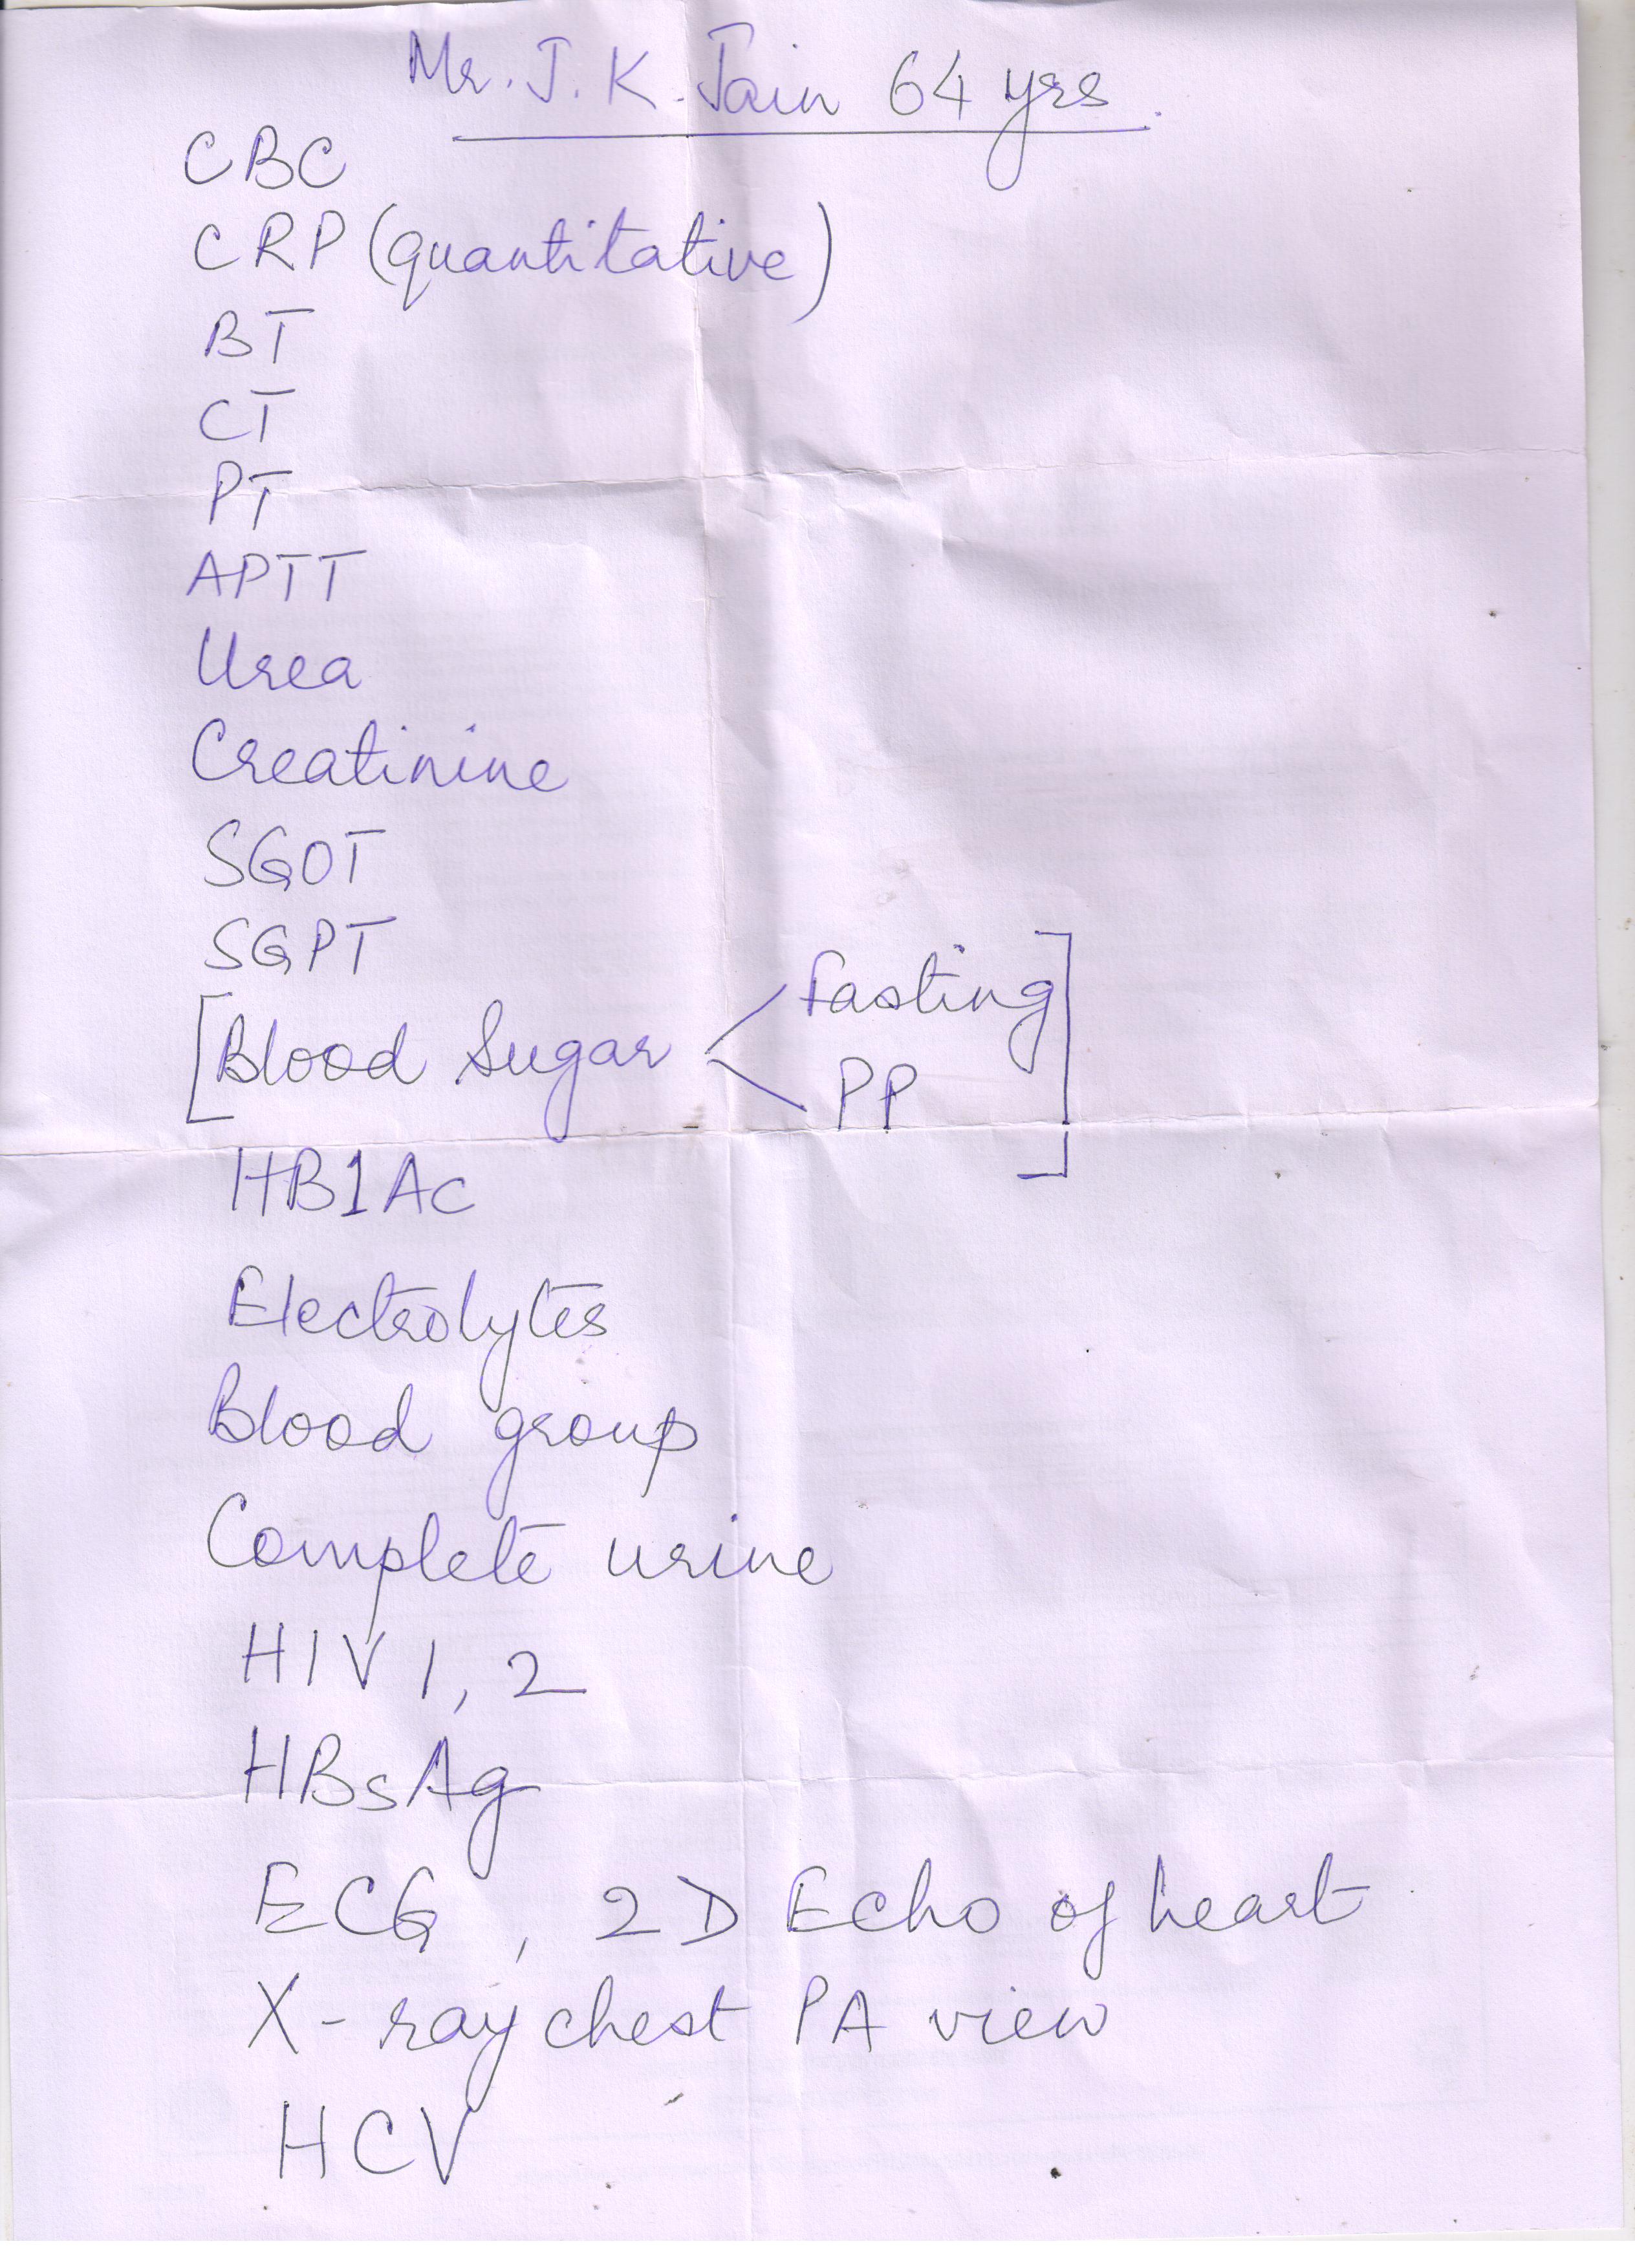 Mr. J. K. Jain 64 yrs.
CBC
CRP (quantitative)
BT
CT
PT
APTT
Urea
Creatinine
SGOT
SGPT
[Blood Sugar < Fasting
PP]
HB1Ac
Electrolytes
Blood group
Complete urine
HIV 1, 2
HBsAg
ECG, 2D Echo of heart
X-ray chest PA view
HCV